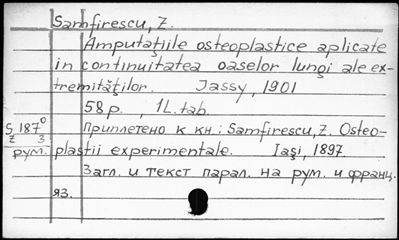 Samfirescu, Z.
Amputaţiile osteoplastice aplicate
in continuitatea oaselor lungi ale ex-
tremităţilor. Jassy, 1901
58 p., 1 L. tab.
S 187⁰
z 3
рум.
Приплетено к кн.: Samfirescu, Z. Osteo-
plastii experimentale. Iaşi, 1897.
Загл. и текст парал. на рум. и франц.
яз.